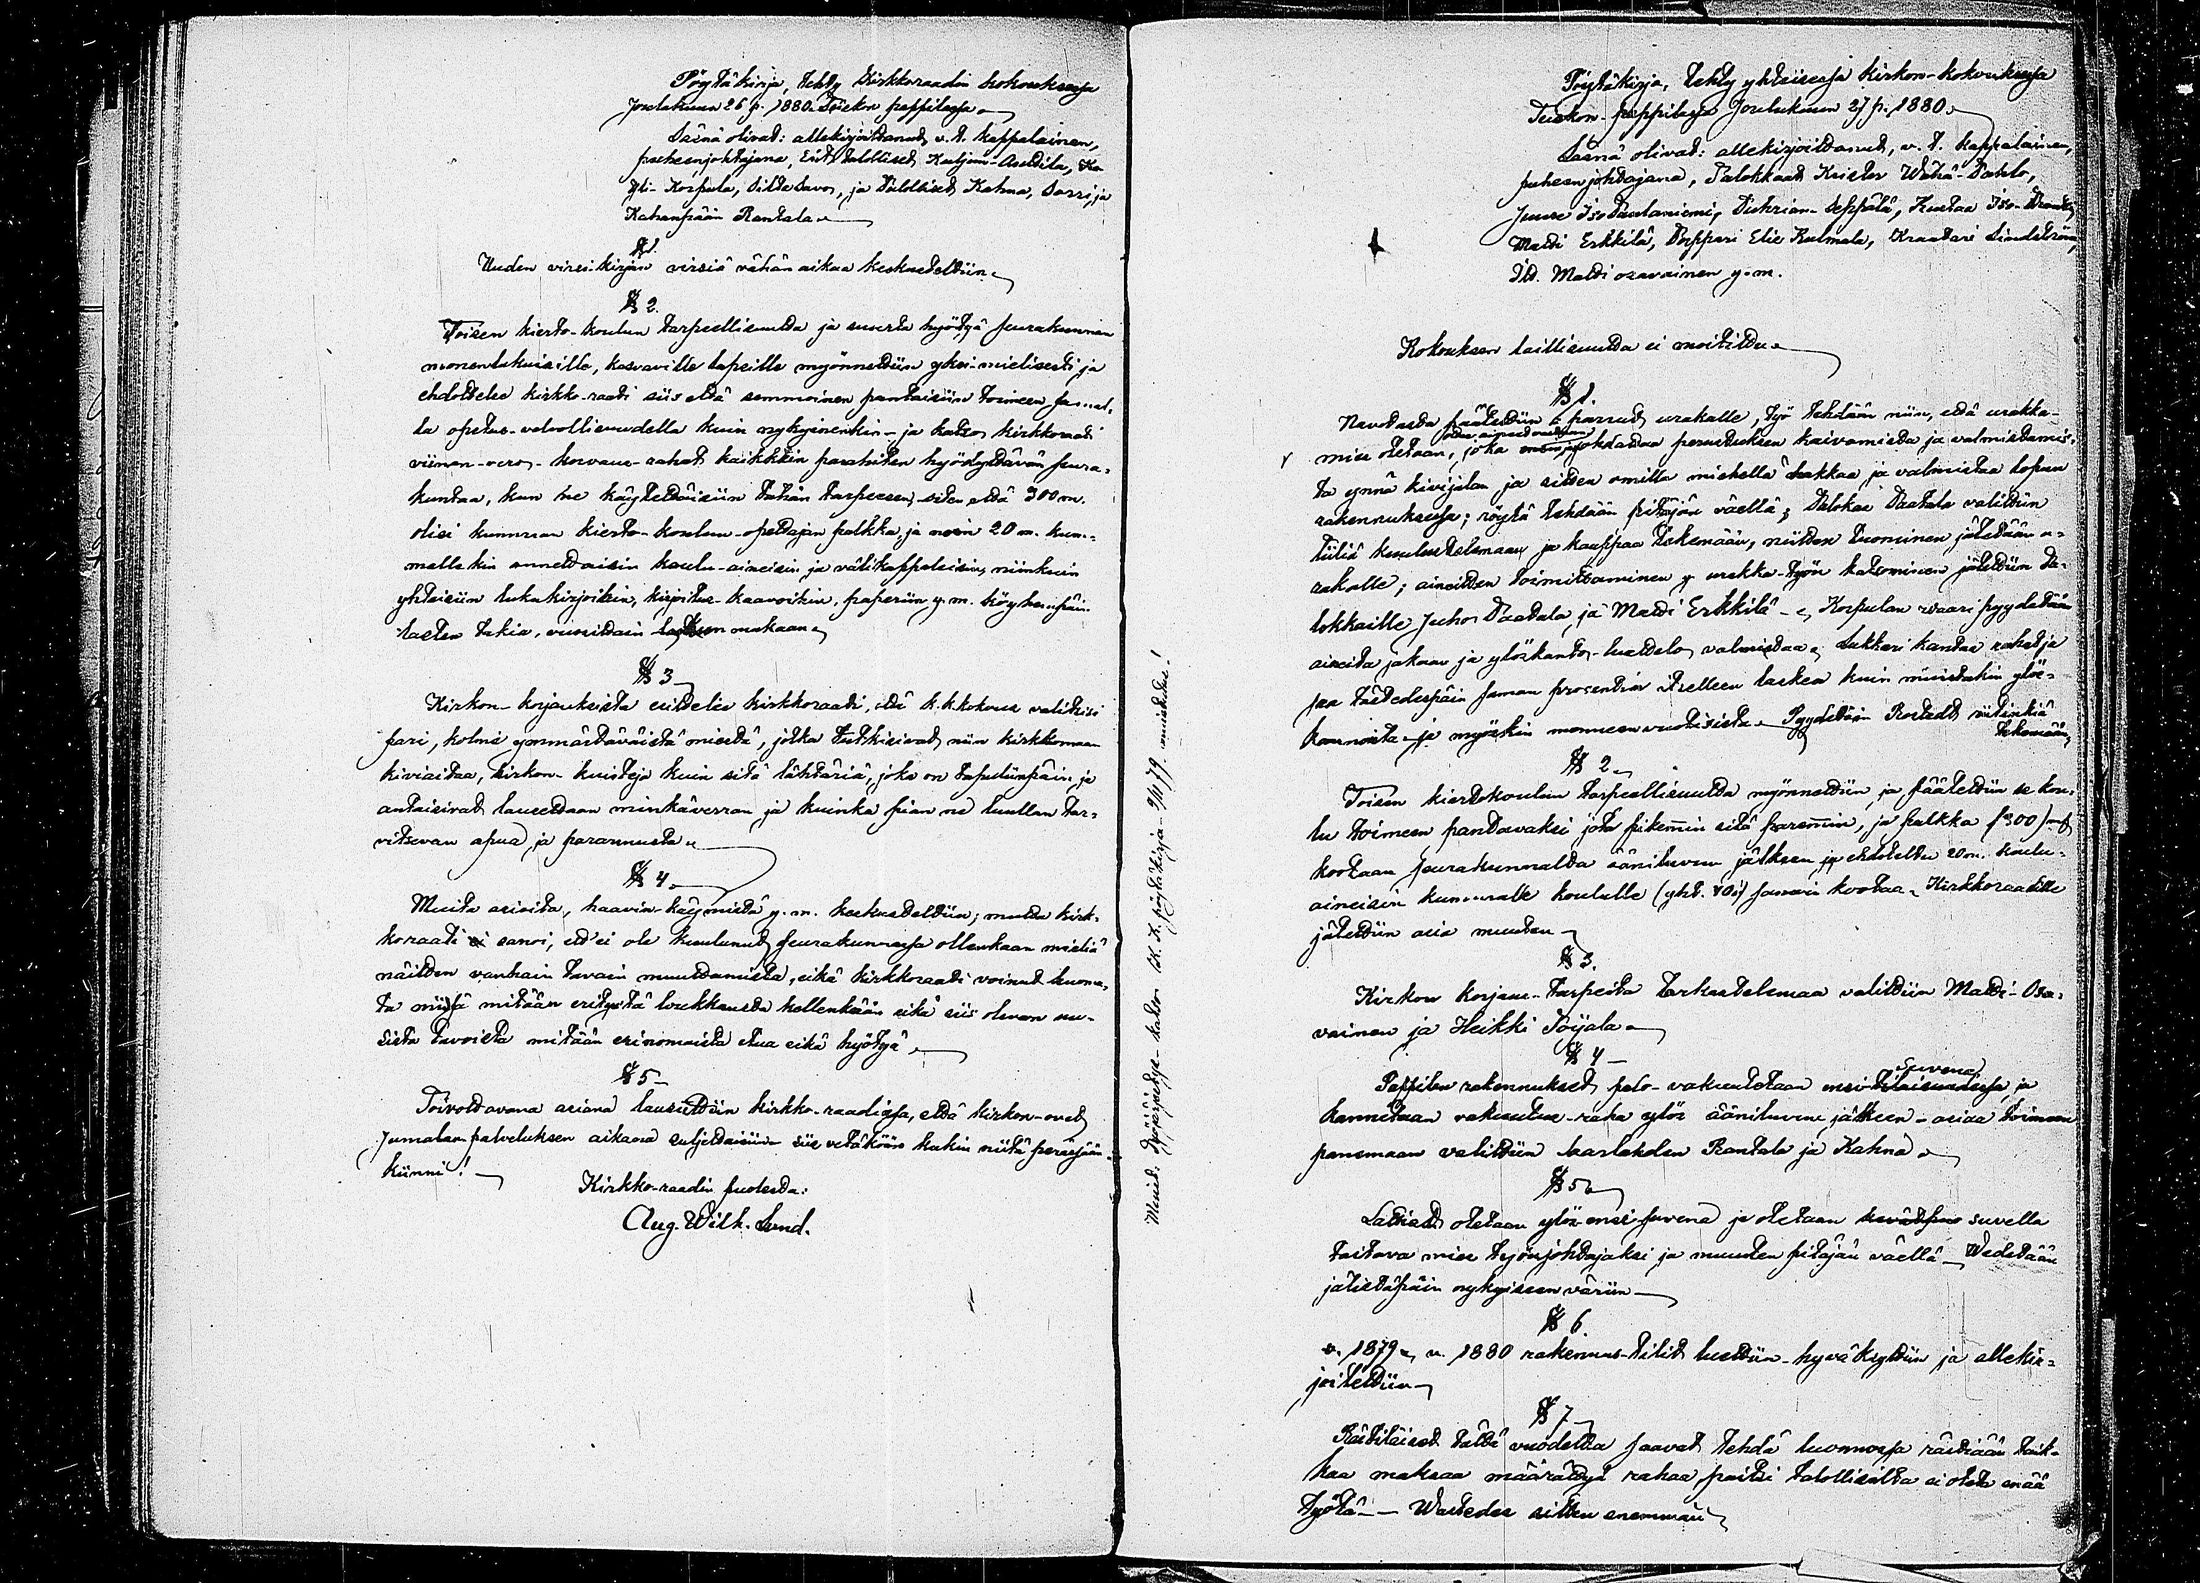 Pöytäkirja, tehty Kirkkoraadin kokouksessa
Joulukuun 26 p. 1880 Teiskon pappilassa
Läsnä olivat: allekirjoittanut v. t. kappalainen,
puheenjohtajana, Eist. talolliset Kuljun-Anttila,
Korpula, Silta Savo, ja Talolliset Kahna, Sarri, ja
Kahanpään Rantala
§ 1.
Uuden virsikirjan virsiä vähän aikaa keskusteltiin
§ 2.
Toisen kierto-koulun tarpeellisuutta ja suurta hyötyä seurakunnan
monenlukuisille, kasvaville lapsille myönnettiin yksi-mielisesti, ja
ehdottelee kirkko-raati siis että semmoinen pantaisiin toimeen samal-
la opetus-velvollisuudella kuin nykyinenkin - ja katsoo kirkkoraati
viinan-vero-korvaus-rahat kaikkein parahiten hyödyttävän seura-
kuntaa, kun ne käytettäisiin tähän tarpeesen, siten että 300 m.
olisi kumman kierto-koulun-opettajan palkka, ja noin 20 m. kum-
mallekin annettaisiin koulu-aineisiin ja välikappaleisiin, niinkuin
yhteisiin lukukirjoihin, kirjoitus-kaavoihin, paperiin y. m. köyhempäin
lasten takia, vuosittain mukaan
§ 3
Kirkon-korjauksista esittelee kirkkoraati, että k.k.kokous valitsisi
pari, kolme ymmärtäväistä miestä, jotka tutkisivat niin kirkkomaan
kiviaitaa, kirkon-kuisteja kuin sitä lähtäriä, joka on tapuliinpäin, ja
antaisivat lauseltaan minkäverran ja kuinka pian ne luullan tar-
vitsevan apua, ja parannusta
§ 4
Muita asioita, haavin-käymistä y. m. keskusteltiin; mutta kirk-
koraati sanoi, ett'ei ole kuulunut seurakunnassa ollenkaan mieliä
näitten vanhain tavain muuttamista, eikä kirkkoraati voinut huoma-
ta niissä mitään erityistä loukkausta kellenkään eikä siis olevan uu-
sista tavoista mitään erinomaista etua eikä hyötyä
§ 5
Toivottavana asiana lausuttiin kirkko-raadissa, että kirkon-ovet
Jumalan-palveluksen aikana suljettaisiin siis vetäköön kukin niitä peräsään
kiinni!
Kirkko-raadin puolesta:
Aug. Wilh. Lund.
Pöytäkirja, tehty yhteisessä kirkon-kokouksessa
Teiskon-pappilassa Joulukuun 27 p. 1880
Läsnä olivat: allekirjoittanut, v. t. kappalainen,
puheenjohtajana, Talokkaat Krister Wähä-Pohto,
Juuse Iso Paulaniemi, Tiuhrian-Seppälä, Kustaa Iso-
Matti Erkkilä, Torppari Elis Kulmala, Kraatari Lindström,
Itd. Matti osavainen y. m.
Kokouksen laillisuutta ei moitittu
§ 1.
Navetasta päätettiin parrut urakalle, työ tehdään niin, että urakka-
mies otetaan, joka johdattaa perustuksen kaivamista ja valmistamis-
ta ynnä kivijalan ja sitten omilla miehellä hakkaa ja valmistaa lopun
rakennuksessa; röystä tehdään pitäjän väellä; Talokas Paatala valittiin
tiiliä kuulustelemaan ja kauppaa tekemään, niitten tuominen jätetään u-
rakalle; aineitten toimitsaminen y. urakka-työn katsominen jätettiin ta-
lokkaille Juho Paatala, ja Matti Erkkilä - Korpulan vaari pyydetään
aineita jakaan ja ylöskanto-luettelo valmistaa. Lukkari kantaa rahat ja
saa tästedespäin saman prosentin itselleen laskea kuin muistakin ylös-
kannoista ja myöskin monneenvuotisista. Pyydetään Rostedt viitinkiä
tekemään
§ 2
Toisen kiertokoulun tarpeellisuutta myönnettiin ja päätettiin se kou-
lu toimeen pantavaksi jota pikemmin sitä paremmin, ja palkka (300) m.
kootaan seurakunnalta ääniluvun jälkeen, ja ehdotettu 20 m. koulu-
aineisiin kummalle koululle (yht. 40) samoin kootaan. Kirkkoraadille
jätettiin asia muuten
§ 3.
Kirkon korjaus-tarpeita tarkastelemaa valittiin Matti Osa-
vainen ja Heikki Töijala
§ 4
Suvena
Pappilan rakennukset palo-vakuutetaan ensi ja
kannetaan vakuutus-raha ylös ääniluvun jälkeen - asiaa toimeen
panemaan valittiin Rantala ja Kahna.
§ 5
Lattiat otetaan ylös ensi suvena ja otetaan suvella
taitava mies työnjohtajaksi ja muuten pitäjän väellä - Wedetään
jälestäpäin nykyiseen väriin
§ 6.
v. 1879 v. 1880 rakennus-tilit luettiin - hyväksyttiin ja allekir-
joitettiin
§ 7
Rästiläiset tältä vuodelta saavat tehdä luonnossa rästiään taik-
ka maksaa määrättyä rahaa, paitsi talollisilta ei oteta enää
työtä - Wastedes sitten enemmän
Muist. katso K. K. pöytäkirja muistutus!